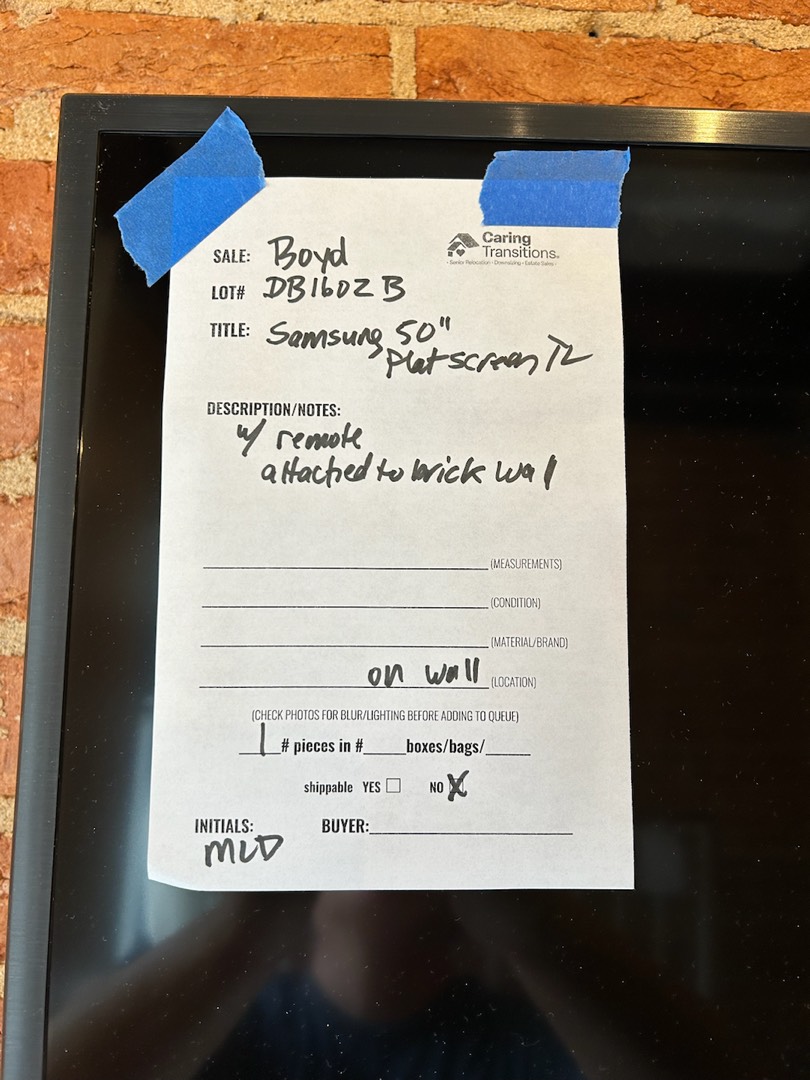 Caring
SALE: Boyd
Transitions®
- Senior Relocation - Downsizing - Estate Sales -
LOT# DB1602B
TITLE: Samsung 50"
flatscreen TV
DESCRIPTION/NOTES:
w/ remote
attached to brick wall
(MEASUREMENTS)
(CONDITION)
(MATERIAL/BRAND)
on wall (LOCATION)
(CHECK PHOTOS FOR BLUR/LIGHTING BEFORE ADDING TO QUEUE)
1 # pieces in #____boxes/bags/____
shippable YES ☐ NO X
INITIALS: BUYER:
MLD